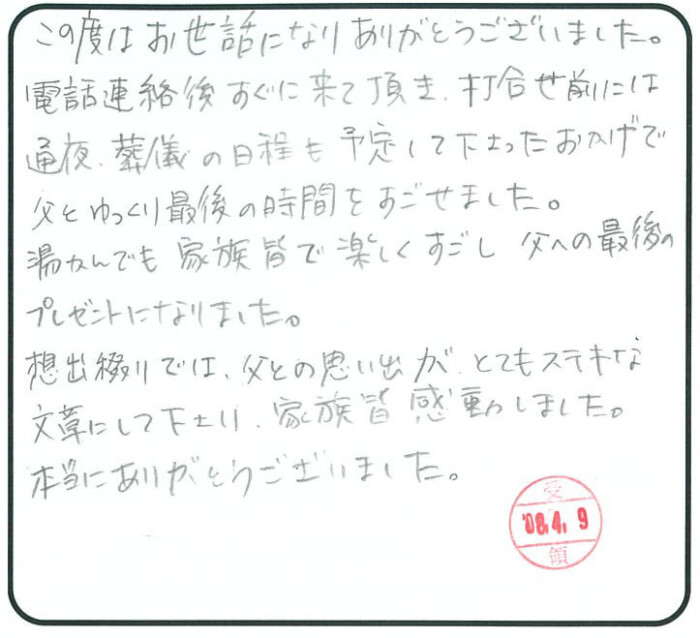 この度はお世話になりありがとうございました。
電話連絡後すぐに来て頂き、打合せ前には
通夜、葬儀の日程も予定して下さったおかげで
父とゆっくり最後の時間をすごせました。
湯かんでも家族皆で楽しくすごし 父への最後の
プレゼントになりました。
想出綴りでは、父との思い出が、とてもステキな
文章にして下さり、家族皆感動しました。
本当にありがとうございました。
受
'08.4.9
領